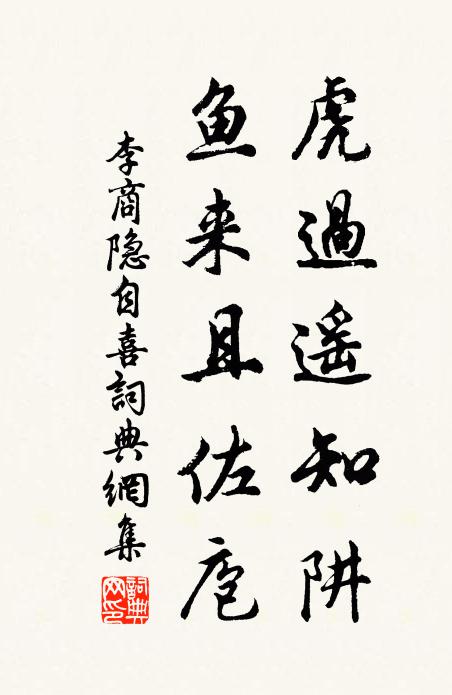 虎過遥知阱
鱼来且佐庖
李商隐自喜詞典網集
詞典网印